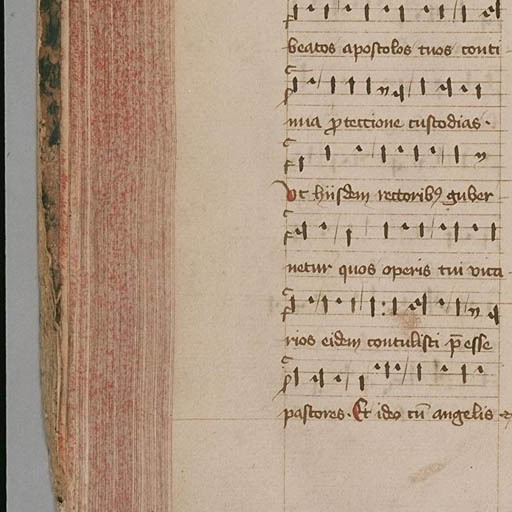 beatos apostolos tuos conti
nua ꝓteccione custodias.
Ut hiisdem rectoribꝰ guber
netur quos operis tui vica
rios eidem contulisti p̄esse
pastores. Et ideo cū angelis ⁊